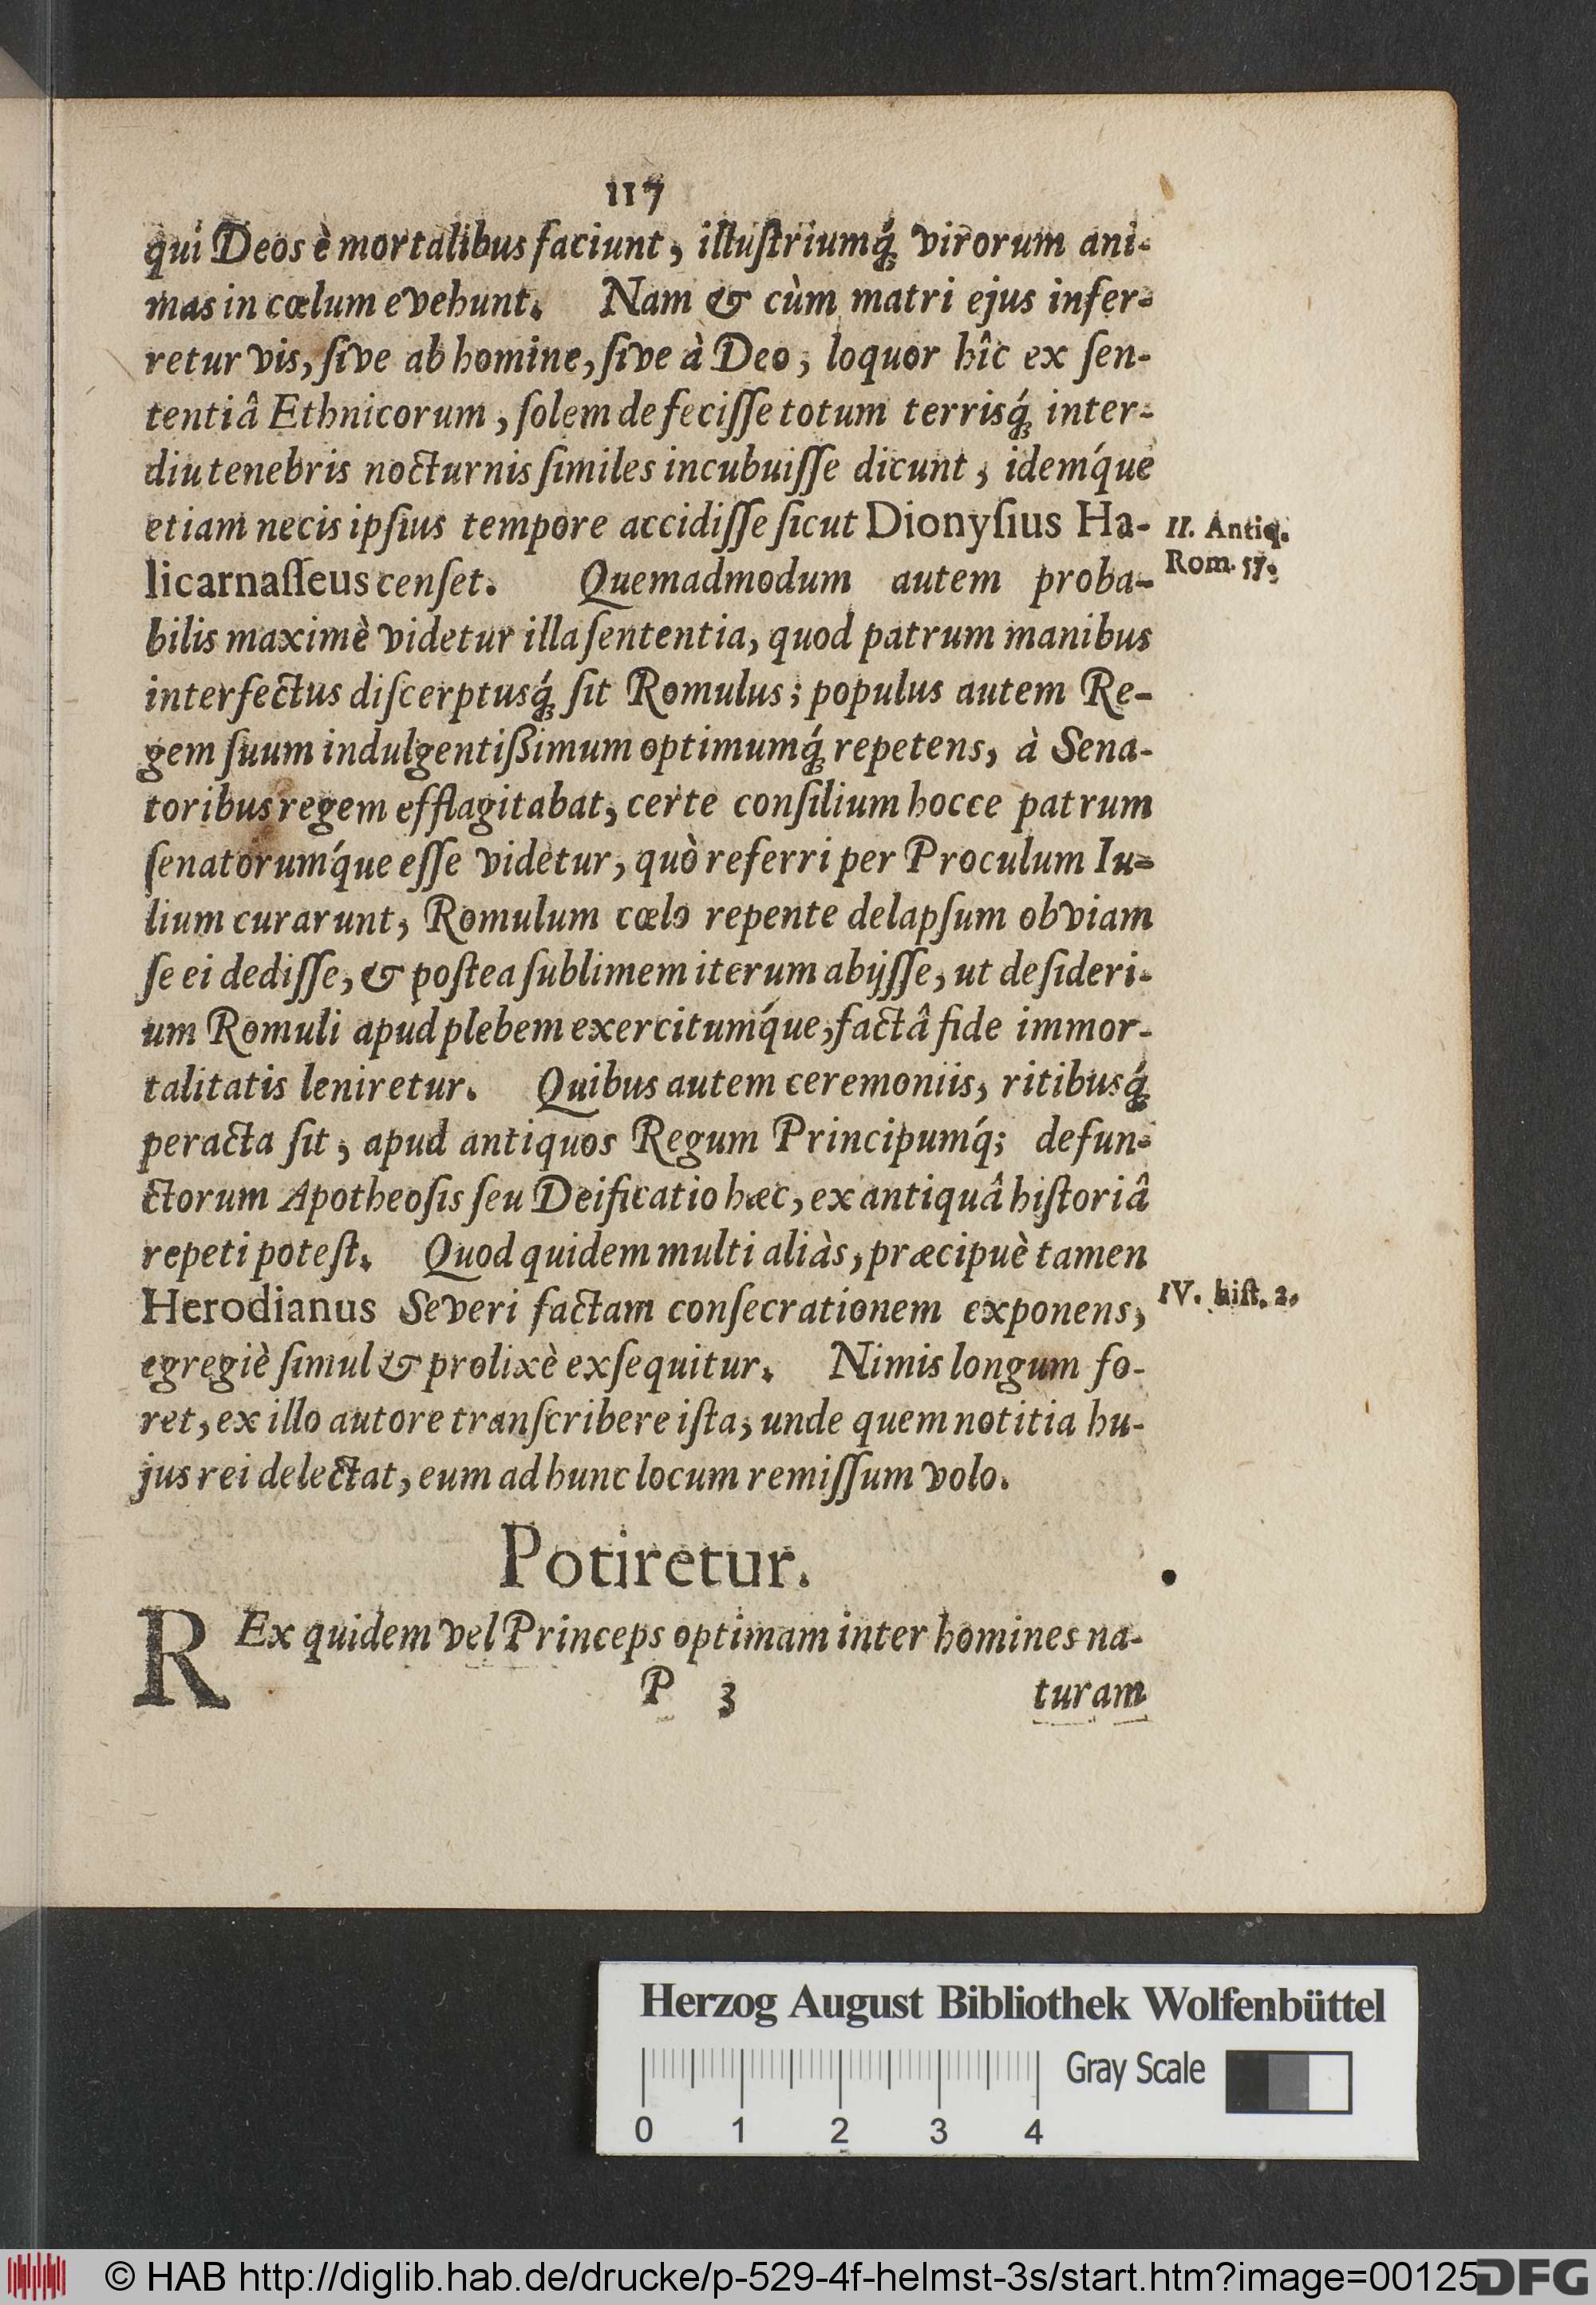 117
qui Deos è mortalibus faciunt, illuſtriumq́ꝫ virorum ani-
mas in cœlum evehunt. Nam & cùm matri ejus infer-
retur vis, ſive ab homine, ſive à Deo, loquor hîc ex ſen-
tentiâ Ethnicorum, ſolem defeciſſe totum terrisq́ꝫ inter-
diu tenebris nocturnis ſimiles incubuiſſe dicunt, idemq́ue
etiam necis ipſius tempore accidiſſe ſicut Dionyſius Ha-
II. Antiq.
Rom. 57.
licarnaſſeus cenſet. Quemadmodum autem proba-
bilis maximè videtur illa ſententia, quod patrum manibus
interfectus diſcerptusq́ꝫ ſit Romulus; populus autem Re-
gem ſuum indulgentißimum optimumq́ꝫ repetens, à Sena-
toribus regem efflagitabat, certe conſilium hocce patrum
ſenatorumq́ue eſſe videtur, quò referri per Proculum Iu-
lium curarunt, Romulum cœlo repente delapſum obviam
ſe ei dediſſe, & poſtea ſublimem iterum abijſſe, ut deſideri-
um Romuli apud plebem exercitumq́ue, factâ fide immor-
talitatis leniretur. Quibus autem ceremoniis, ritibusq́ꝫ
peracta ſit, apud antiquos Regum Principumq́; defun-
ctorum Apotheoſis ſeu Deificatio hæc, ex antiquâ hiſtoriâ
repeti poteſt. Quod quidem multi aliàs, præcipuè tamen
Herodianus Severi factam conſecrationem exponens,
IV. hiſt. 2.
egregiè ſimul & prolixè exſequitur. Nimis longum fo-
ret, ex illo autore tranſcribere iſta, unde quem notitia hu-
jus rei delectat, eum ad hunc locum remiſſum volo.
Potiretur.
REx quidem vel Princeps optimam inter homines na-
P 3
turam
Herzog August Bibliothek Wolfenbüttel
Gray Scale
0 1 2 3 4
© HAB http://diglib.hab.de/drucke/p-529-4f-helmst-3s/start.htm?image=00125
DFG